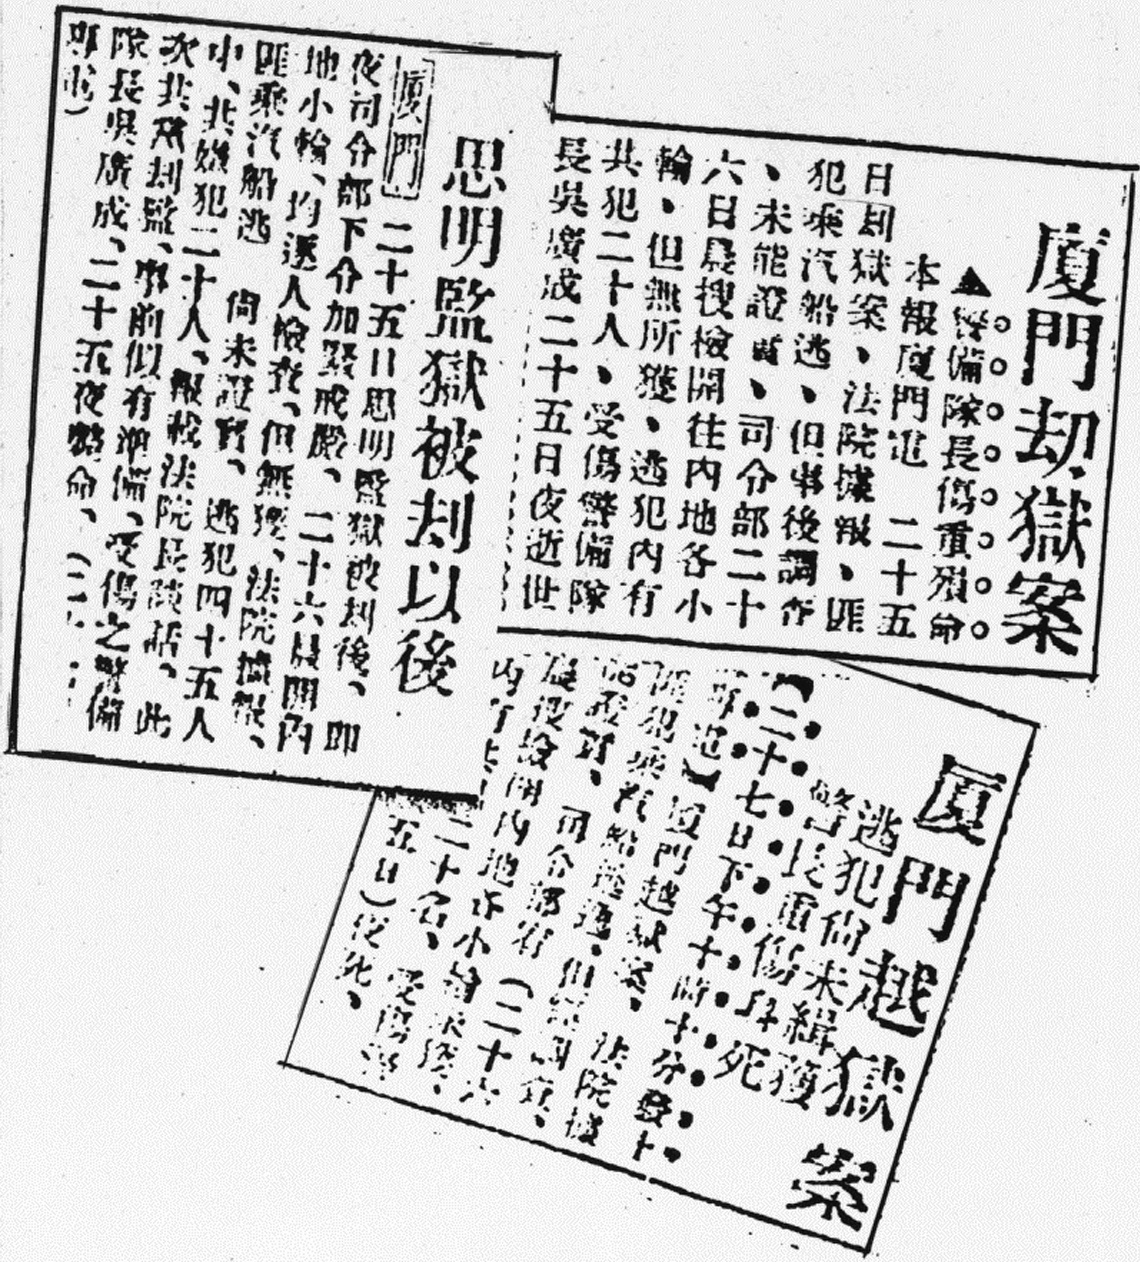 廈門劫獄案
▲警備隊長傷重殞命
本報廈門電 二十五
日刦獄案、法院據報、匪
犯乘汽船逃、但事後調查
、未能證實、司令部二十
六日晨搜檢開往內地各小
輪、但無所獲、逃犯內有
共犯二十人、受傷警備隊
長吳廣成二十五日夜逝世
思明監獄被刦以後
廈門 二十五日思明監獄被刦後、即
夜司令部下令加緊戒嚴、二十六晨開內
地小輪、均遂人檢查、但無獲、法院據報、
匪乘汽船逃 尚未證實、逃犯四十五人
中、共嫌犯二十人、報載法院長談話、此
次共黨刦監、事前似有準備、受傷之警備
隊長吳廣成、二十五夜斃命、
廈門越獄案
逃犯尚未緝獲
警長重傷身死
【二十七日下午十時十分發
電】廈門越獄案、法院據
匪犯乘汽船逃遁、但
司令部有（二十六
晨搜檢開內地各小輪
內有共
二十名、受傷
五日）夜死、